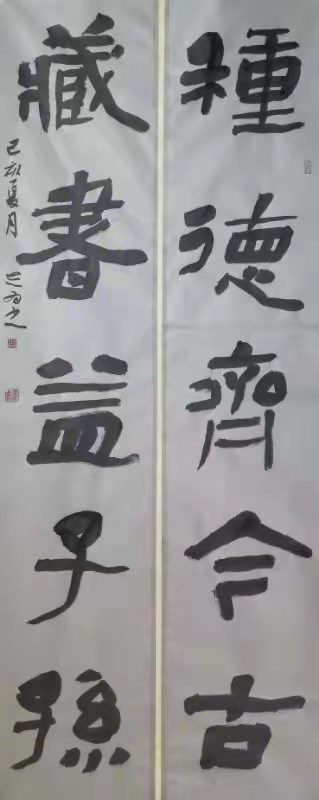 種德齊今古
藏書益子孫
己亥夏月